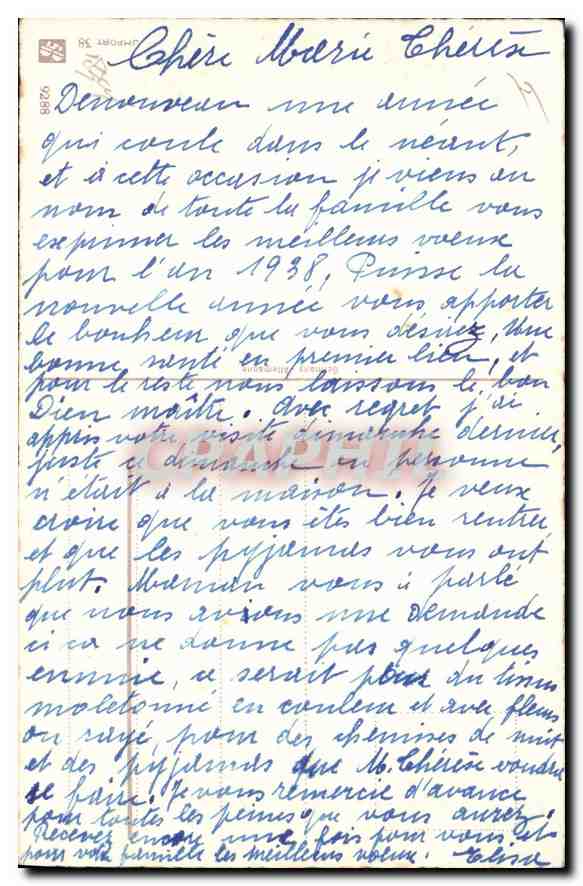 Chère Marie Thérèse
Denouveau une année
qui coule dans le néant,
et à cette occasion je viens au
nom de toute la famille vous
exprimer les meilleurs voeux
pour l'an 1938. Puisse la
nouvelle année vous apporter
le bonheur que vous désirez, Une
bonne santé en premier lieu, et
pour le reste nous laissons le bon
Dieu maître. Avec regret j'ai
appris votre visite dimanche dernier,
juste ce dimanche en personne
n'était à la maison. Je veux
croire que vous êtes bien rentré
et que les pyjamas vous ont
plut. Maman vous à parlé
que nous avions une demande
si ca ne donne pas quelques
ennuie, ce serait pour du tissus
moletonné en couleur et avec fleurs
ou rayé, pour des chemises de nuit
et des pyjamas que M. Thérèse voudra
se faire. Je vous remercie d'avance
pour toutes les peines que vous aurez.
Recevez encore une fois pour vous et
pour votre famille les meilleurs voeux. Elisa
IMPORT 38
9288
Germany Allemagne